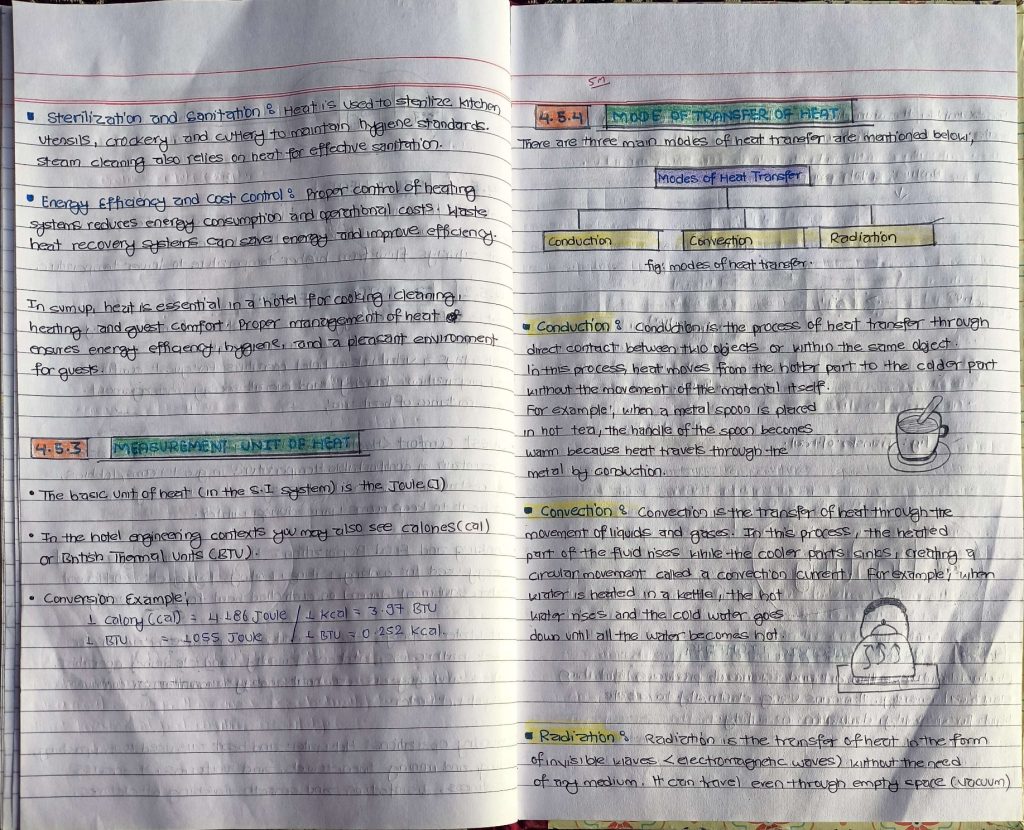 ▪ Sterilization and Sanitation : Heat is used to sterilize kitchen
utensils, crockery, and cuttery to maintain hygiene standards.
steam cleaning also relies on heat for effective sanitation.
• Energy Efficiency and cost control : Proper control of heating
systems reduces energy consumption and operational costs. Waste
heat recovery systems can save energy and improve efficiency.
In sumup, heat is essential in a hotel for cooking, cleaning,
heating, and guest comfort. Proper management of heat
ensures energy efficiency, hygiene, and a pleasant environment
for guests.
4.5.3 MEASUREMENT UNIT OF HEAT
• The basic unit of heat (in the S.I system) is the Joule (J)
• In the hotel engineering contexts you may also see calories (cal)
or British Thermal Units (BTU).
• Conversion Example;
1 calory (cal) = 4.186 Joule / 1 kcal = 3.97 BTU
1 BTU = 1055 Joule / 1 BTU = 0.252 kcal.
4.5.4 MODE OF TRANSFER OF HEAT
There are three main modes of heat transfer are mentioned below;
Modes of Heat Transfer
Conduction Convection Radiation
fig: modes of heat transfer.
▪ Conduction : Conduction is the process of heat transfer through
direct contact between two objects or within the same object.
In this process, heat moves from the hotter part to the colder part
without the movement of the material itself.
For example; when a metal spoon is placed
in hot tea, the handle of the spoon becomes
warm because heat travels through the
metal by conduction.
▪ Convection : Convection is the transfer of heat through the
movement of liquids and gases. In this process, the heated
part of the fluid rises while the cooler parts sinks, creating a
circular movement called a convection current. For example; when
water is heated in a kettle, the hot
water rises and the cold water goes
down until all the water becomes hot.
▪ Radiation : Radiation is the transfer of heat in the form
of invisible waves <electromagnetic waves) without the need
of any medium. It can travel even through empty space (vacuum)